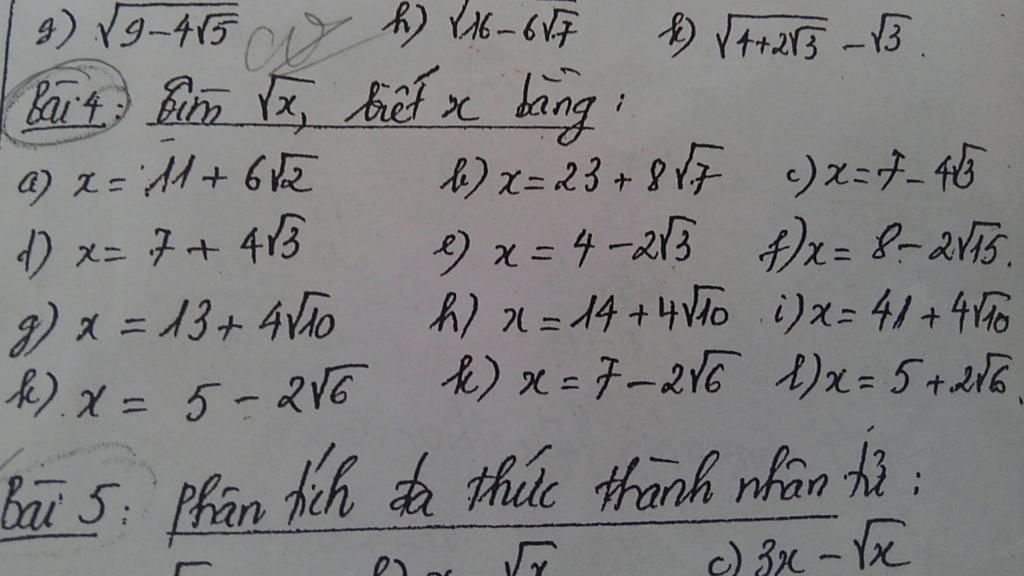 g) √9-4√5 h) √16-6√7 k) √4+2√3 - √3.
Bài 4: Tìm √x, biết x bằng:
a) x = 11 + 6√2 b) x = 23 + 8√7 c) x = 7 - 4√3
d) x = 7 + 4√3 e) x = 4 - 2√3 f) x = 8 - 2√15.
g) x = 13 + 4√10 h) x = 14 + 4√10 i) x = 41 + 4√10
k) x = 5 - 2√6 k) x = 7 - 2√6 l) x = 5 + 2√6.
Bài 5: Phân tích đa thức thành nhân tử:
c) 3x - √x